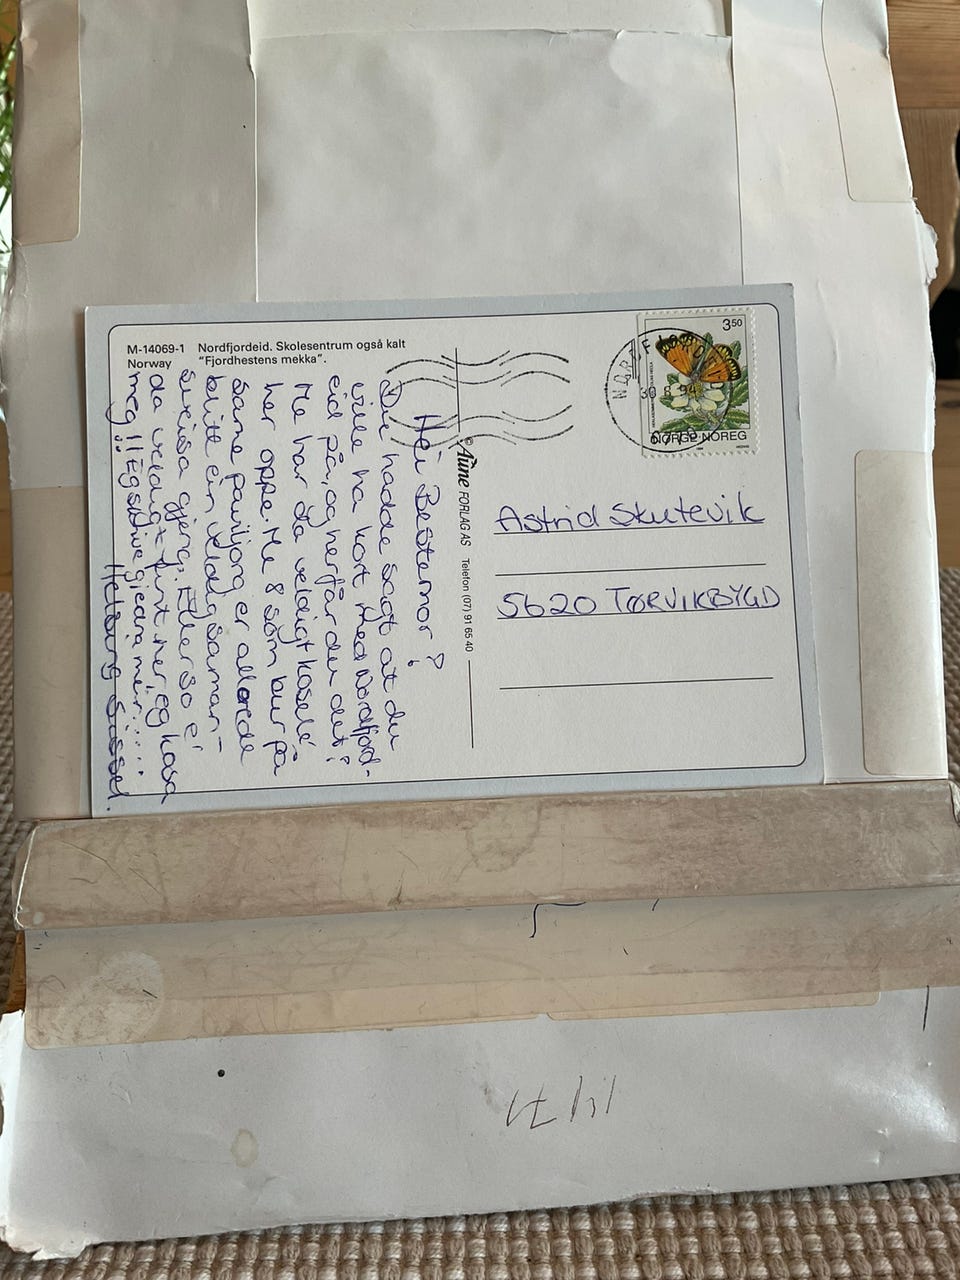 M-14069-1 Nordfjordeid. Skolesentrum også kalt
Norway "Fjordhestens mekka".
Hei Bestemor!
Die hadde sagt at du
ville ha kort med Nordfjord-
eid på, og her får du det!
Me har da veldigt koselé
her oppe. Me 8 som bur på
samme paviljong er allerede
blitt ein veldig saman-
sveisa gjeng. Ellers so e'
da veldigt fint her, eg kosa
meg!! Eg skrive gjedna mer.....
Helsing Sissel.
© Aune FORLAG AS Telefon (07) 91 65 40
3 50
NORGE NOREG
NORDFJORDEID
30.8.94
6770
Astrid Skutevik
5620 TØRVIKBYGD